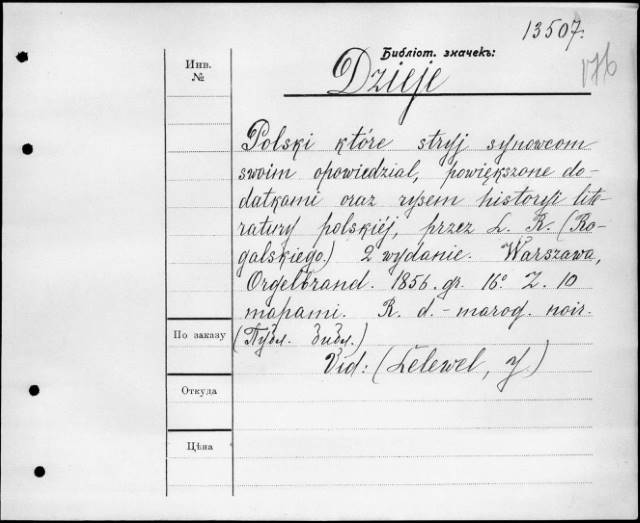 13507.
176
Инв.
№
Библіот. значекъ:
Dzieje
Polski które stryj synowcom
swoim opowiedzial, powiększone do-
datkami oraz rysem historyi lite-
ratury polskiéj, przez L. R. (Ro-
galskiego.) 2 wydanie. Warszawa,
Orgelbrand. 1856. gr. 16° Z. 10
mapami. R. d. - maroq. noir.
(Публ. Библ.)
Vid: (Lelewel, J.)
По заказу
Откуда
Цѣна